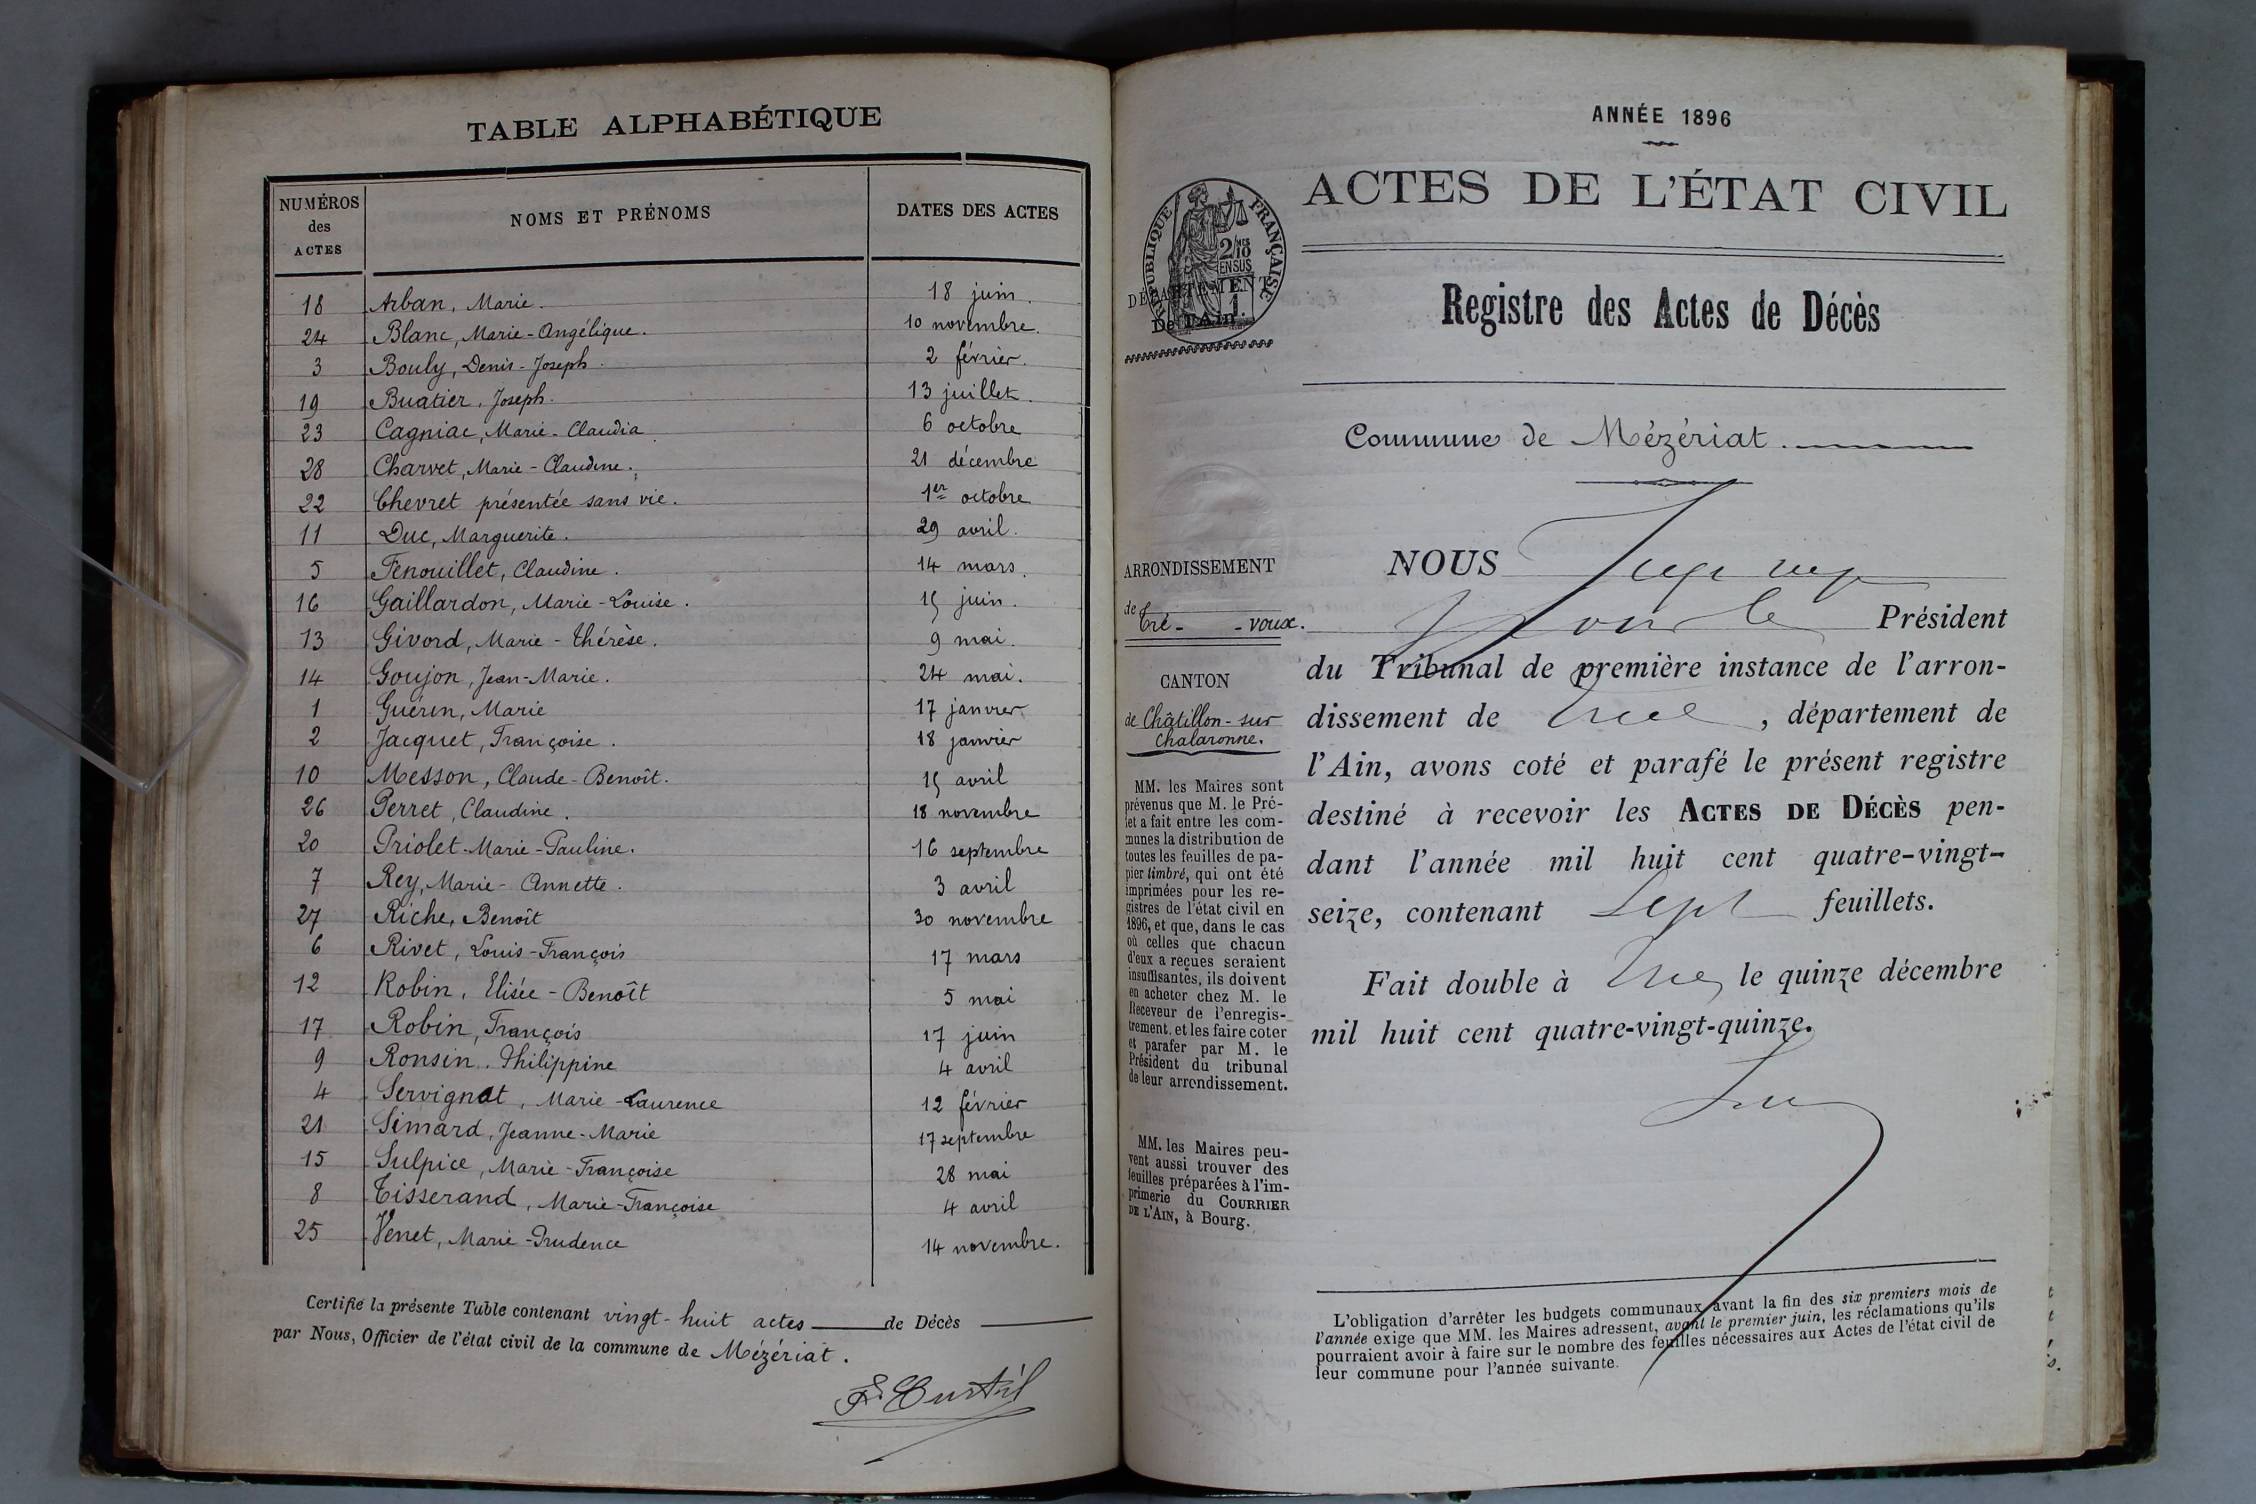 TABLE ALPHABÉTIQUE
NUMÉROS des ACTES
NOMS ET PRÉNOMS
DATES DES ACTES
18 Arban, Marie. 18 juin.
24 Blanc, Marie-Angélique. 10 novembre.
3 Bouly, Denis-Joseph. 2 février.
19 Buatier, Joseph. 13 juillet.
23 Cagniac, Marie-Claudia 6 octobre
28 Charvet, Marie-Claudine. 21 décembre
22 Chevret présentée sans vie. 1er octobre
11 Duc, Marguerite. 29 avril.
5 Fenouillet, Claudine. 14 mars.
16 Gaillardon, Marie-Louise. 15 juin.
13 Givord, Marie-Thérèse. 9 mai.
14 Goujon, Jean-Marie. 24 mai.
1 Guérin, Marie 17 janvier
2 Jacquet, Françoise. 18 janvier
10 Messon, Claude-Benoît. 15 avril
26 Perret, Claudine. 18 novembre
20 Priolet-Marie-Pauline. 16 septembre
7 Rey, Marie-Annette. 3 avril
27 Riche, Benoît 30 novembre
6 Rivet, Louis-François 17 mars
12 Robin, Elisée-Benoît 5 mai
17 Robin, François 17 juin
9 Ronsin, Philippine 4 avril
4 Servignat, Marie-Laurence 12 février
21 Simard, Jeanne-Marie 17 septembre
15 Sulpice, Marie-Françoise 28 mai
8 Tisserand, Marie-Françoise 4 avril
25 Venet, Marie-Prudence 14 novembre.
Certifié la présente Table contenant vingt-huit actes de Décès
par Nous, Officier de l'état civil de la commune de Mézériat.
ANNÉE 1896
ACTES DE L'ÉTAT CIVIL
RÉPUBLIQUE FRANÇAISE
2/10 EN SUS
DÉPARTEMENT
De l'Ain.
Registre des Actes de Décès
Commune de Mézériat.
ARRONDISSEMENT
de Tré- -voux.
CANTON
de Châtillon-sur
Chalaronne.
MM. les Maires sont
prévenus que M. le Pré-
fet a fait entre les com-
munes la distribution de
toutes les feuilles de pa-
pier timbré, qui ont été
imprimées pour les re-
gistres de l'état civil en
1896, et que, dans le cas
où celles que chacun
d'eux a reçues seraient
insuffisantes, ils doivent
en acheter chez M. le
Receveur de l'enregis-
trement. et les faire coter
et parafer par M. le
Président du tribunal
de leur arrondissement.
MM. les Maires peu-
vent aussi trouver des
feuilles préparées à l'im-
primerie du COURRIER
DE L'AIN, à Bourg.
NOUS
Président
du Tribunal de première instance de l'arron-
dissement de , département de
l'Ain, avons coté et parafé le présent registre
destiné à recevoir les ACTES DE DÉCÈS pen-
dant l'année mil huit cent quatre-vingt-
seize, contenant Sept feuillets.
Fait double à le quinze décembre
mil huit cent quatre-vingt-quinze.
L'obligation d'arrêter les budgets communaux avant la fin des six premiers mois de
l'année exige que MM. les Maires adressent, avant le premier juin, les réclamations qu'ils
pourraient avoir à faire sur le nombre des feuilles nécessaires aux Actes de l'état civil de
leur commune pour l'année suivante.